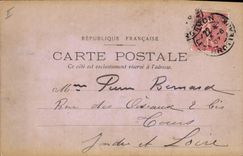 RÉPUBLIQUE FRANÇAISE
CARTE POSTALE
Ce côté est exclusivement réservé à l'adresse.
Mme Bernard
Rue des Oiseaux 2 bis
Tours
Indre et Loire